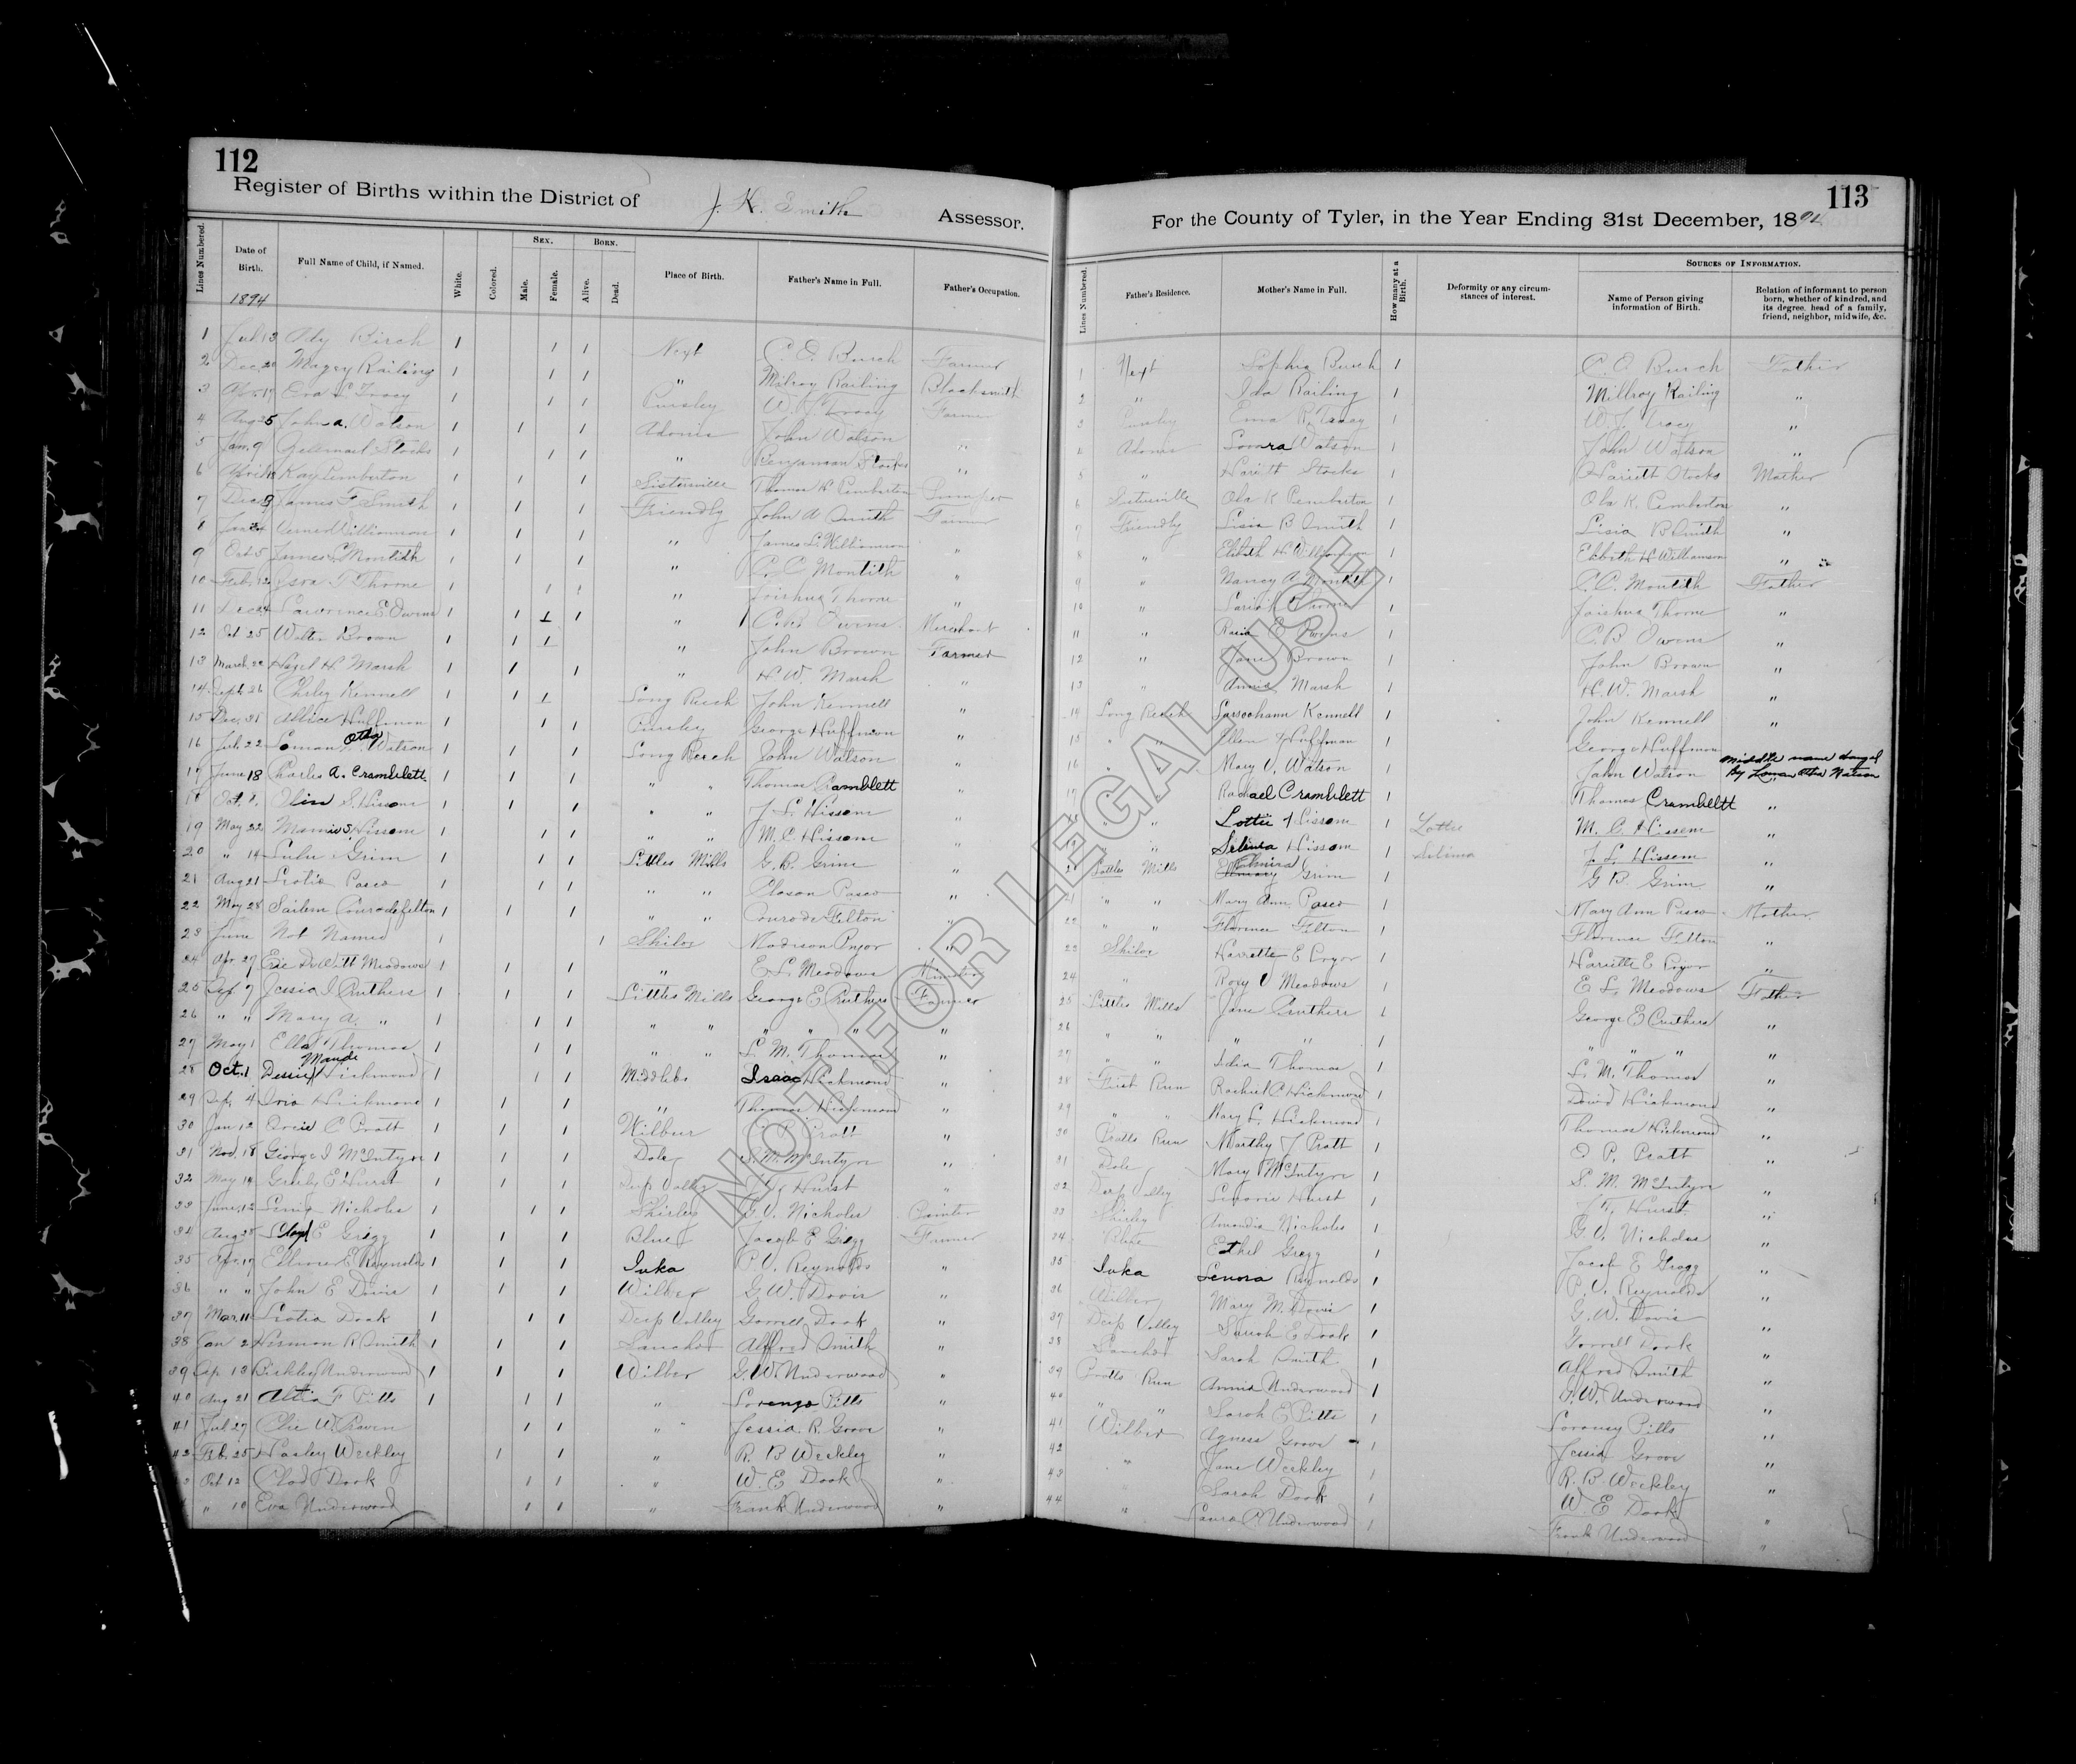 112
Register of Births within the District of J. K. Smith Assessor.
Lines Numbered. Date of Birth. Full Name of Child, if Named. White. Colored. Sex. Male. Female. Born. Alive. Dead. Place of Birth. Father's Name in Full. Father's Occupation.
1894
1 Jul 13 Ady Birch 1 1 1 Next C. O. Burch Farmer
2 Dec 20 Magey Railing 1 1 1 " Milroy Railing Blacksmith
3 17 Eva L Tracy 1 1 1 Pursley W. J. Tracy Farmer
4 Aug 25 John A. Watson 1 1 1 Adonis John Watson "
5 Jan. 9 Stocks 1 1 1 " Benjaman Stocks "
6 Ray Pemberton 1 1 1 Sistersville Thomas H Pemberton Pumper
7 Dec 9 James F Smith 1 1 1 Friendly John A Smith Farmer
8 Jan 24 Verner Williamson 1 1 1 " James L. Williamson "
9 Oct 5 James C. Montith 1 1 1 " C. C. Montith "
10 Feb. 12 Thorne 1 1 1 " Joishua Thorne "
11 Dec 4 Lawrence E Owens 1 1 1 1 " Owens Merchant
12 Oct 25 Walter Brown 1 1 1 " John Brown Farmer
13 March 22 Hazel H. Marsh 1 1 1 " H. W. Marsh "
14 Sept. 26 Chrley Kennell 1 1 1 Long Reech John Kennell "
15 Dec. 31 Allice Huffman 1 1 1 Pursley George Huffman "
16 Jul. 22 Loman Otha Watson 1 1 1 Long Reech John Watson "
17 June 18 Charles A. Cramblett 1 1 1 " " Thomas Cramblett "
18 Oct. 1. Olin S. Hissom 1 1 1 " " J. L. Hissom "
19 May 22 Mamie S. Hissom 1 1 1 " " M. C. Hissom "
20 " 14 Lulu Grim 1 1 1 Littles Mills G. B. Grim "
21 Aug 21 Leotia Pasco 1 1 1 " " Closon Pasco "
22 May 28 Conrade Felton 1 1 1 " " Conrade Felton "
23 June Not Named 1 1 Shiloe Madison Pryor "
24 Apr 27 Eric DeWitt Meadows 1 1 1 " E. L. Meadows Minister
25 Sep. 7 Jessia I Cruthers 1 1 1 Littles Mills George E Cruthers Farmer
26 " " Mary A. " 1 1 1 " " " " " "
27 May 1 Ella Thomas 1 1 1 " " L. M. Thomas "
28 Oct. 1 Dessie Maude Hickmond 1 1 1 Middlebo Isaac Hickmond "
29 Sep. 4 Iris Hickmond 1 1 1 " Thomas Hickmond "
30 Jan 12 Ocie C Pratt 1 1 1 Wilbur O. P. Pratt "
31 Nov. 18 George I McIntyre 1 1 1 Dole S. M. McIntyre "
32 May 14 E Hurst 1 1 1 Deep Valley Hurst "
33 June 12 Nicholes 1 1 1 Shirley G. V. Nicholes Painter
34 Aug 28 Lloyd E Gregg 1 1 1 Blue Jacob E Gregg Farmer
35 Apr. 19 Ellmer E Reynolds 1 1 1 Iuka P. V. Reynolds "
36 " " John E Davis 1 1 1 Wilber G. W. Davis "
37 Mar. 11 Leotia Doak 1 1 1 Deep Valley Gorrell Doak "
38 Jan 2 Herman R Smith 1 1 1 Sancho Alffred Smith "
39 Sep. 13 Birkley Underwood 1 1 1 Wilber G. W Underwood "
40 Aug 21 Altia F Pitts 1 1 1 " Lorenzo Pitts "
41 Jul 27 1 1 " Jessia. R. Groves "
42 Feb. 25 Hasley Weekley 1 1 " R. B Weekley "
3 Oct 12 Clod Doak 1 1 " W. E Doak "
" 10 Eva Underwood 1 1 " Frank Underwood "
113
For the County of Tyler, in the Year Ending 31st December, 1894
Lines Numbered. Father's Residence. Mother's Name in Full. How many at a Birth. Deformity or any circumstances of interest. Sources of Information. Name of Person giving information of Birth. Relation of informant to person born, whether of kindred, and its degree, head of a family, friend, neighbor, midwife, &c.
1 Next Sophia Burch 1 C. O Burch Father
2 " Ida Railing 1 Millroy Railing "
3 Pursley Ema R. Tracy 1 W. J. Tracy "
4 Adonis Lovara Watson 1 John Watson "
5 " Hariett Stocks 1 Hariett Stocks Mother
6 Sistersville Ola K Pemberton 1 Ola K. Pemberton "
7 Friendly Lisia B Smith 1 Lisia B Smith "
8 " H Williamson 1 H Williamson "
9 " Nancy A Montith 1 C. C. Montith Father
10 " Sariah Thorne 1 Joishua Thorne "
11 " Rosia E Owens 1 C. B Owens "
12 " Jane Brown 1 John Brown "
13 " Annie Marsh 1 H. W. Marsh "
14 Long Reech Sarrochann Kennell 1 John Kennell "
15 " " Ellen Huffman 1 George Huffman
16 " " Mary V. Watson 1 John Watson Middle name changed By Loman Otha Watson
17 " " Rachael Cramblett 1 Thomas Cramblett "
" " Lottie Hissom 1 Lottie M. C. Hissem "
19 " Selima Hissom 1 Selima J. L. Hissem "
2 Littles Mills Elmira Grim 1 G B. Grim "
21 " " Mary Ann Pasco 1 Mary Ann Pasco Mother
22 " " Florence Felton 1 Florence Felton "
23 Shiloe Harrette E Pryor 1 Hariette E Pryor "
24 " Roxy V Meadows 1 E L. Meadows Father
25 Littles Mills Jane Cruthers 1 George E Cruthers "
26 " " " " 1 " " " "
27 " " Idia Thomas 1 L. M. Thomas "
28 First Run Rachiel C Hickmond 1 David Hickmond "
29 " " Mary L. Hickmond 1 Thomas Hickmond "
30 Pratts Run Marthy J Pratt 1 O P. Pratt "
31 Dole Mary McIntyre 1 S. M. McIntyre "
32 Deep Valley Hurst 1 Hurst "
33 Shirley Amandia Nicholes 1 G. V. Nicholes "
34 Blue Ethel Gregg 1 Jacob E Gregg "
35 Iuka Lenora Reynolds 1 P. V. Reynolds "
36 Wilber Mary M. Davis 1 G. W. Davis "
37 Deep Valley Sarah E Doak 1 Gorrell Doak "
38 Sancho Sarah Smith 1 Alfred Smith "
39 Pratts Run Annia Underwood 1 G. W. Underwood "
40 " " Sarah E Pitts 1 Pitts "
41 Wilber Agness Groves 1 Jessia Groves "
42 " Jane Weekley 1 R. B. Weekley "
43 " Sarah Doak 1 W. E Doak "
44 " Laura Underwood 1 Frank Underwood "
NOT FOR LEGAL USE